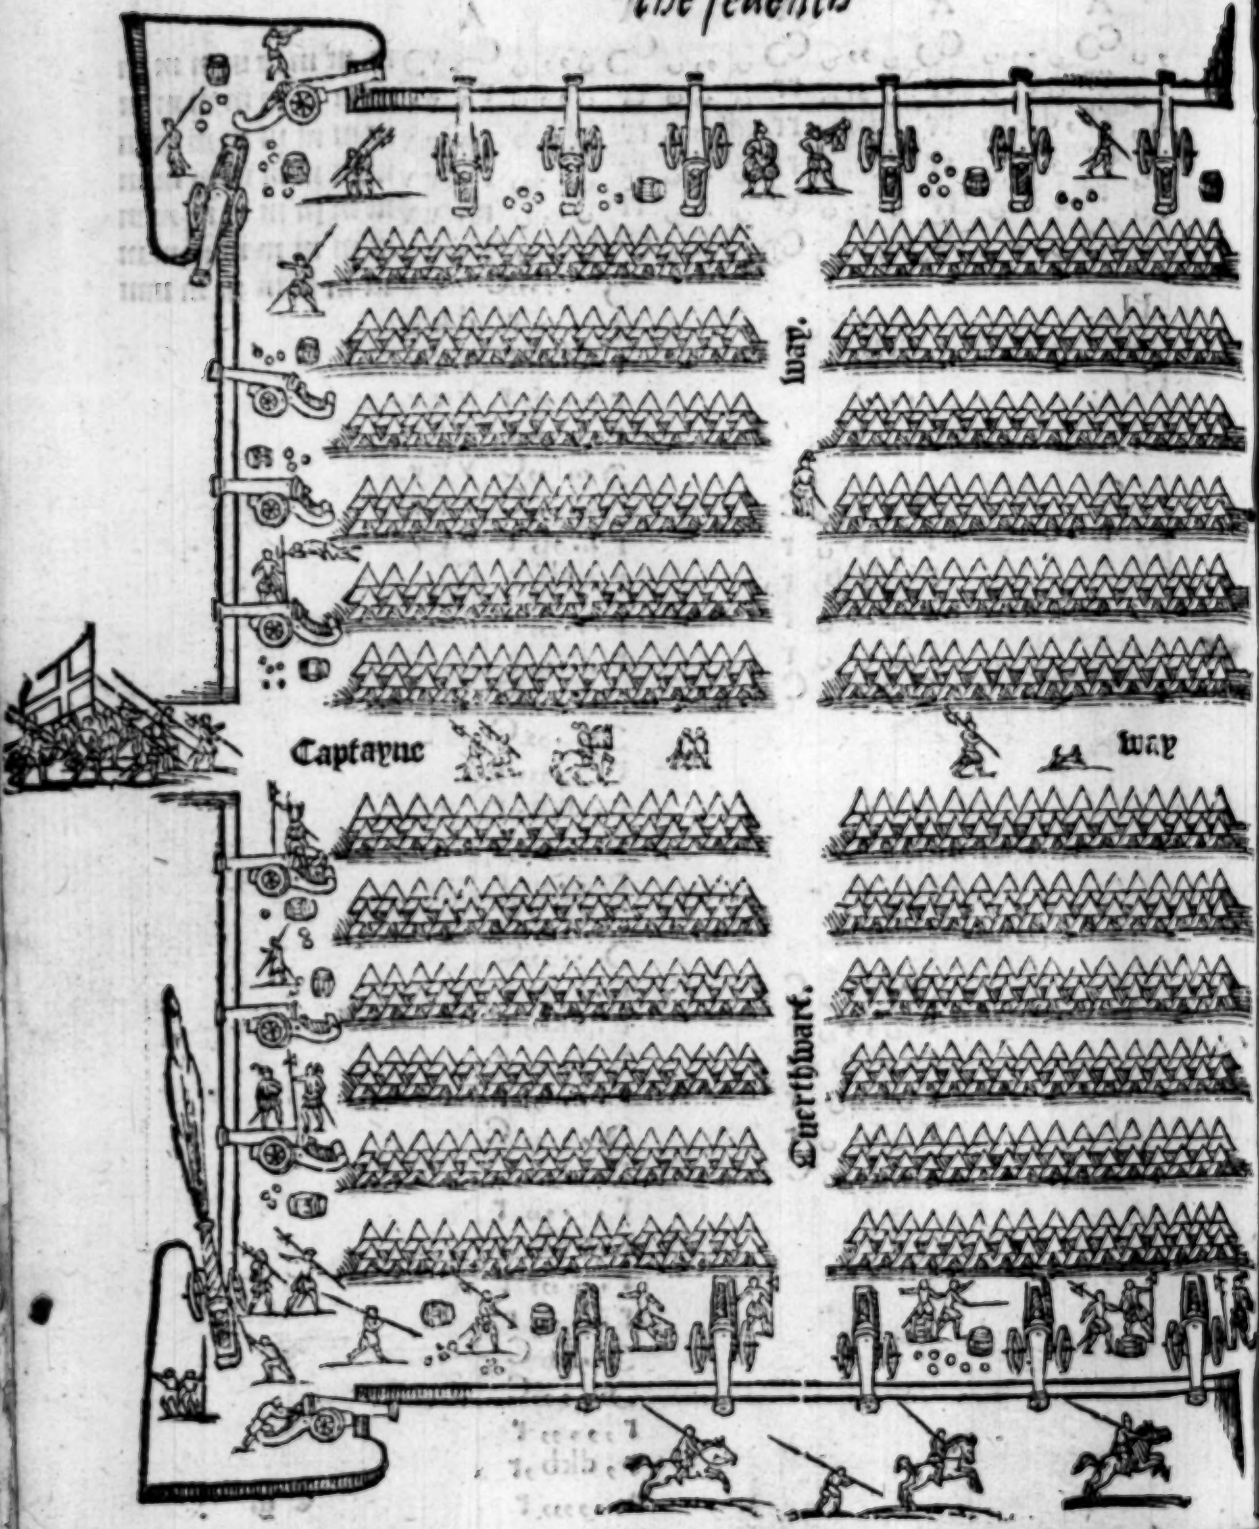 the seventh
way.
Captayne way
Ouerthwart.